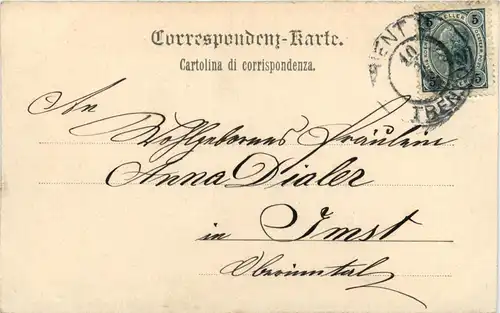 Correspondenz-Karte.
Cartolina di corrispondenza.
5 HELLER 5
5 5
TRIENT
10
TREN
An
Wohlgeborenes Fräulein
Anna Dialer
in Imst
Oberinntal